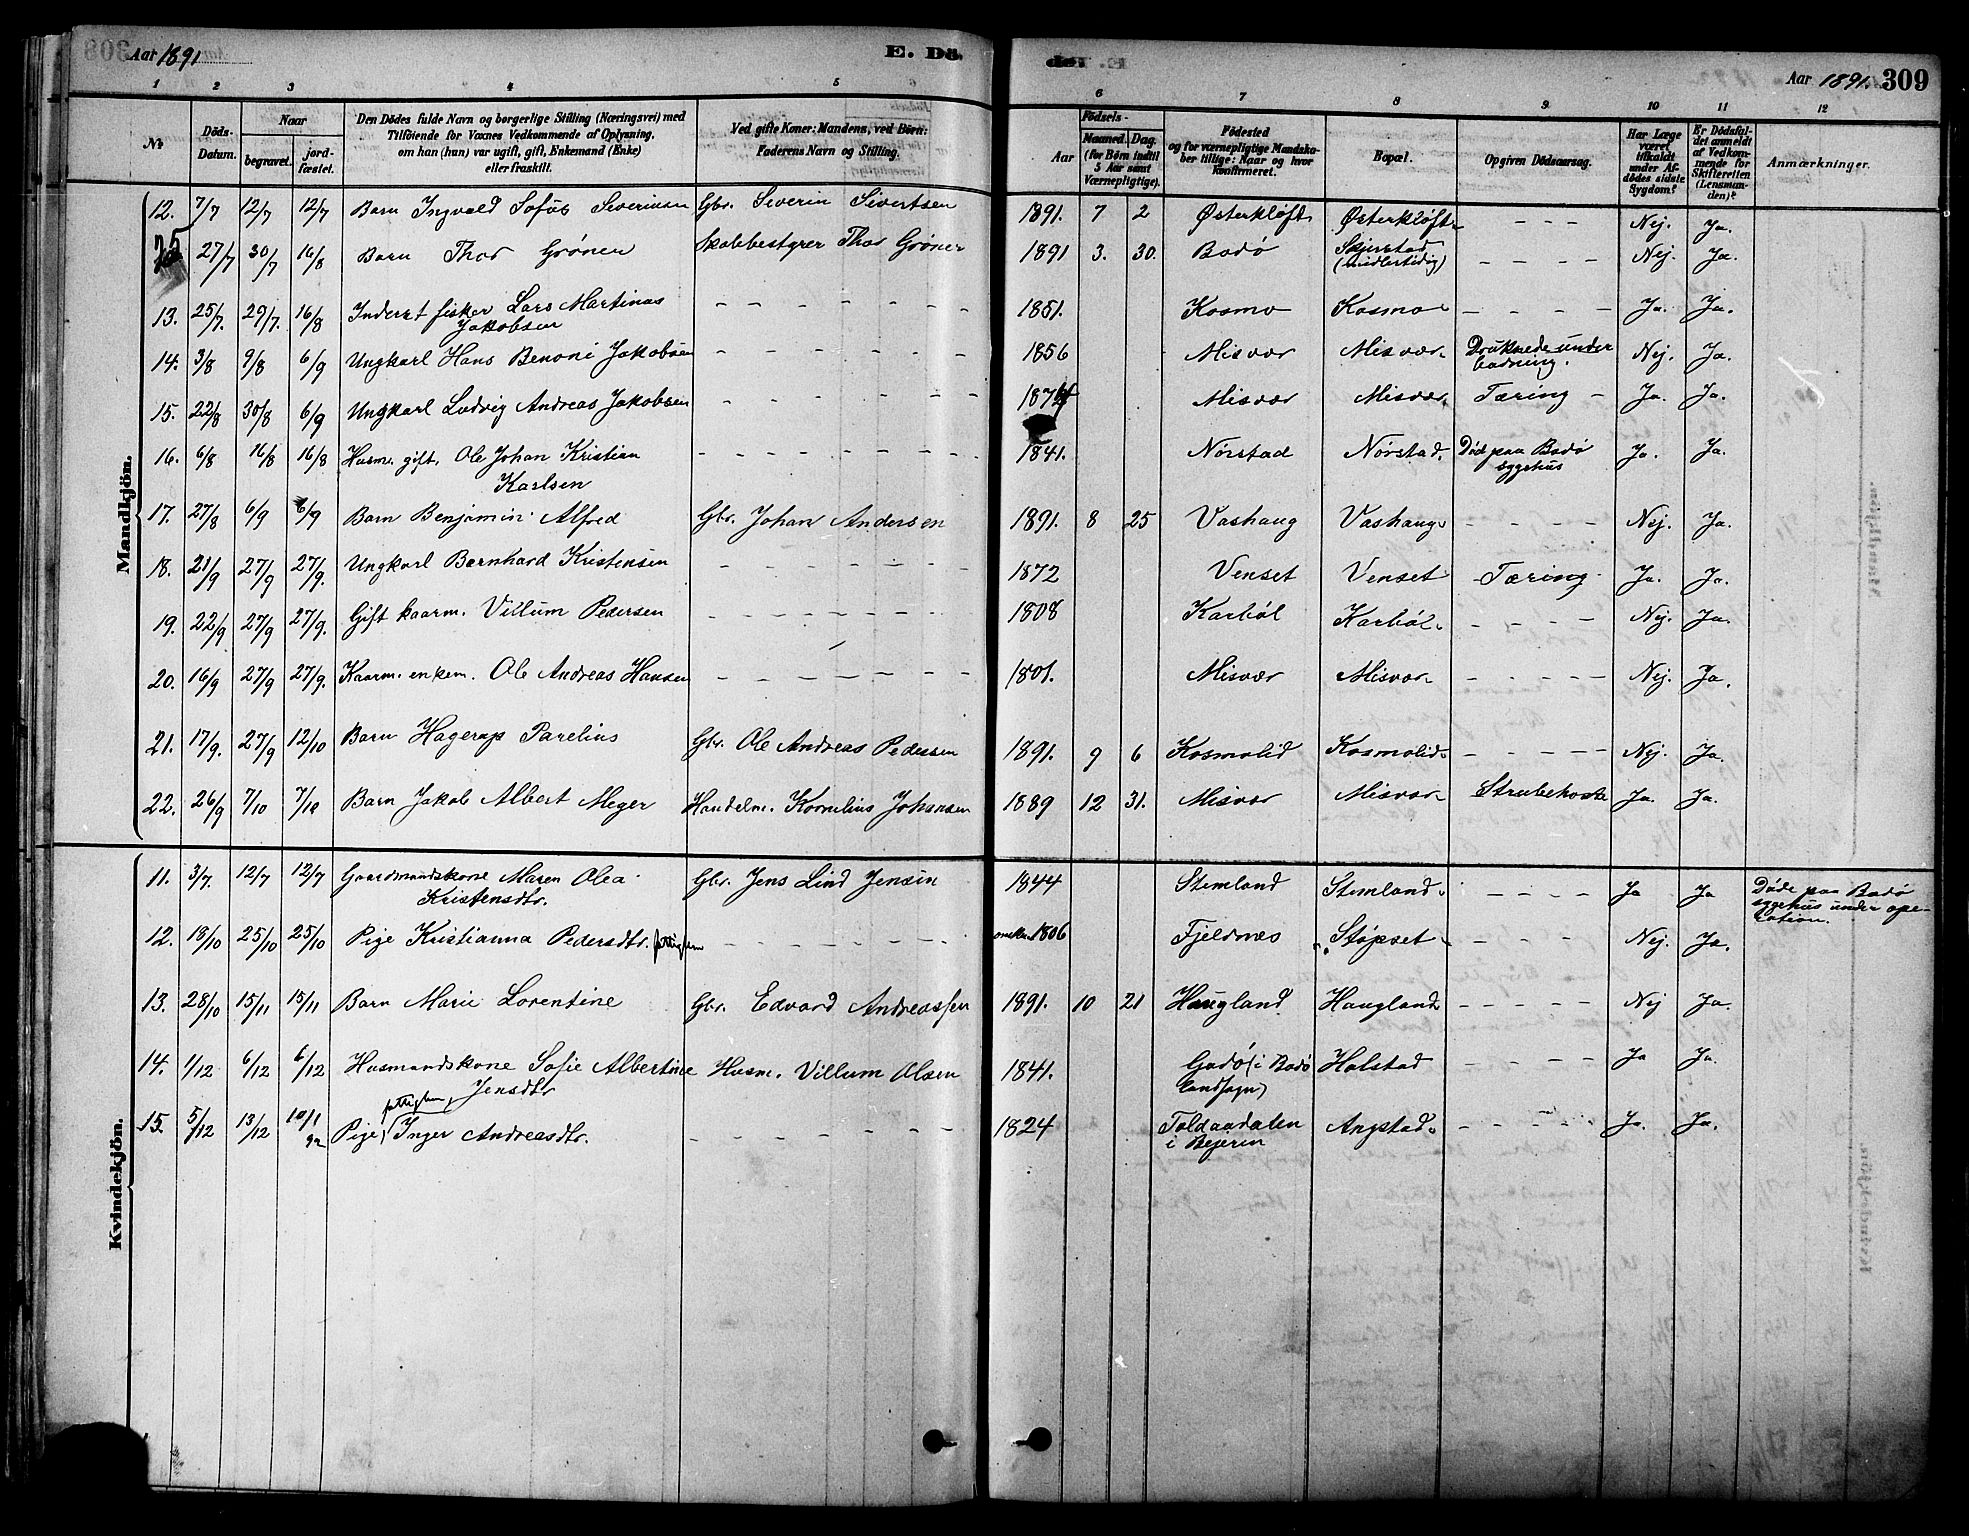 Aar 1891
E. Dö
Aar 1891. 309
1 2 3 4 5 6 7 8 9 10 11 12
No
Döds-Datum.
Naar
begravet.
jord-fæstet.
Den Dödes fulde Navn og borgerlige Stilling (Næringsvei) med
Tilföiende for Voxnes Vedkommende af Oplysning,
om han (hun) var ugift, gift, Enkemand (Enke)
eller fraskilt.
Ved gifte Koner: Mandens, ved Börn:
Faderens Navn og Stilling.
Födsels-
Aar
Maaned. Dag.
(for Börn indtil
5 Aar samt
Værnepligtige).
Födested
og for værnepligtige Mandska-
ber tillige: Naar og hvor
konfirmeret.
Bopæl.
Opgiven Dödsaarsag.
Har Læge
været
tilkaldt
under Af-
dödes sidste
Sygdom?
Er Dödsfal-
det anmeldt
af Vedkom-
mende for
Skifteretten
(Lensman-
den)?
Anmærkninger.
Mandkjön.
12. 7/7 12/7 12/7 Barn Ingvald Sofus Severinsen Gbr. Severin Sivertsen 1891. 7 2 Østerkløft Østerkløft - - - Nej. Ja.
27/7 30/7 16/8 Barn Thor Grønen Skolebestyrer Thor Grøner 1891 3. 30. Bodø Skjerstad (midlertidig) - - - - Nej. Ja.
13. 25/7. 29/7. 16/8 Inderst fisker Lars Martinus - - - - - - - 1851. Kosmo Kosmo - - - - Ja. Ja.
Jakobsen
14. 3/8 9/8 6/9 Ungkarl Hans Benoni Jakobsen - - - - - - - 1856 Misvær Misvær Druknede under badning. Nej. Ja.
15. 22/8 30/8 6/9 Ungkarl Ludvig Andreas Jakobsen - - - - - - - Misvær Misvær. Tæring - Ja. Ja.
16. 6/8 16/8 16/8 Husm. gift, Ole Johan Kristian - - - - - - - 1841. Nørstad Nørstad. Død paa Bodø sygehus Ja. Ja.
Karlsen
17. 27/8 6/9 6/9 Barn Benjamin Alfred Gbr. Johan Andersen 1891. 8 25 Vashaug Vashaug - - - - Nej. Ja.
18. 21/9 27/9 27/9. Ungkarl Bernhard Kristensen - - - - - - - 1872 Venset Venset Tæring Ja. Ja.
19. 22/9 27/9 27/9. Gift kaarm. Villum Pedersen - - - - - - - 1808 Karbøl Karbøl. - - - - Nej. Ja.
20. 16/9 27/9 27/9. Kaarm. enkem. Ole Andreas Hansen - - - - - - - 1801. Misvær Misvær - - - - Nej. Ja.
21. 17/9. 27/9 12/10 Barn Hagerup Parelius Gbr. Ole Andreas Pedersen 1891. 9 6 Kosmolid Kosmolid - - - - Nej. Ja.
22. 26/9 7/10 7/10 Barn Jakob Albert Meyer Handelm. Kornelius Johansen 1889 12 31. Misvær Misvær Strubehoste Ja. Ja.
Kvindekjön.
11. 3/7. 12/7 12/7 Gaardmandskone Maren Olea Gbr. Jens Lind Jensen 1844 Stemland Stemland. - - - - Ja Ja Døde paa Bodø
Kristensdtr. sygehus under ope-
ration.
12. 18/10 25/10 25/10 Pige Kristianna Pedersdtr. fattiglem - - - - - - - 1806 Fjeldnes Støpset - - - - Nej. Ja.
13. 28/10 15/11 15/11 Barn Marie Lorentine Gbr. Edvard Andreassen 1891. 10 21 Haugland Haugland - - - - Nej Ja.
14. 1/12 6/12 6/12 Husmandskone Sofie Albertine Husm. Villum Olsen 1841. Godø (i Bodø landsogn) Halstad - - - - Ja Ja.
Jensdtr
15. 5/12 13/12 10/1 92 Pige, fattiglem, Inger Andreasdtr. - - - - - - - 1824 Toldaadalen i Bejern Angstad. - - - - Ja. Ja.